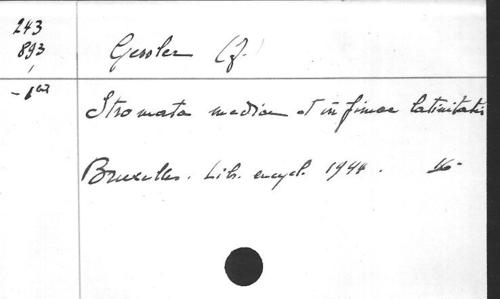 243
893
Gessler (J.)
Stromata mediae et infimae latinitatis
Bruxelles. Lib. encycl. 1944.